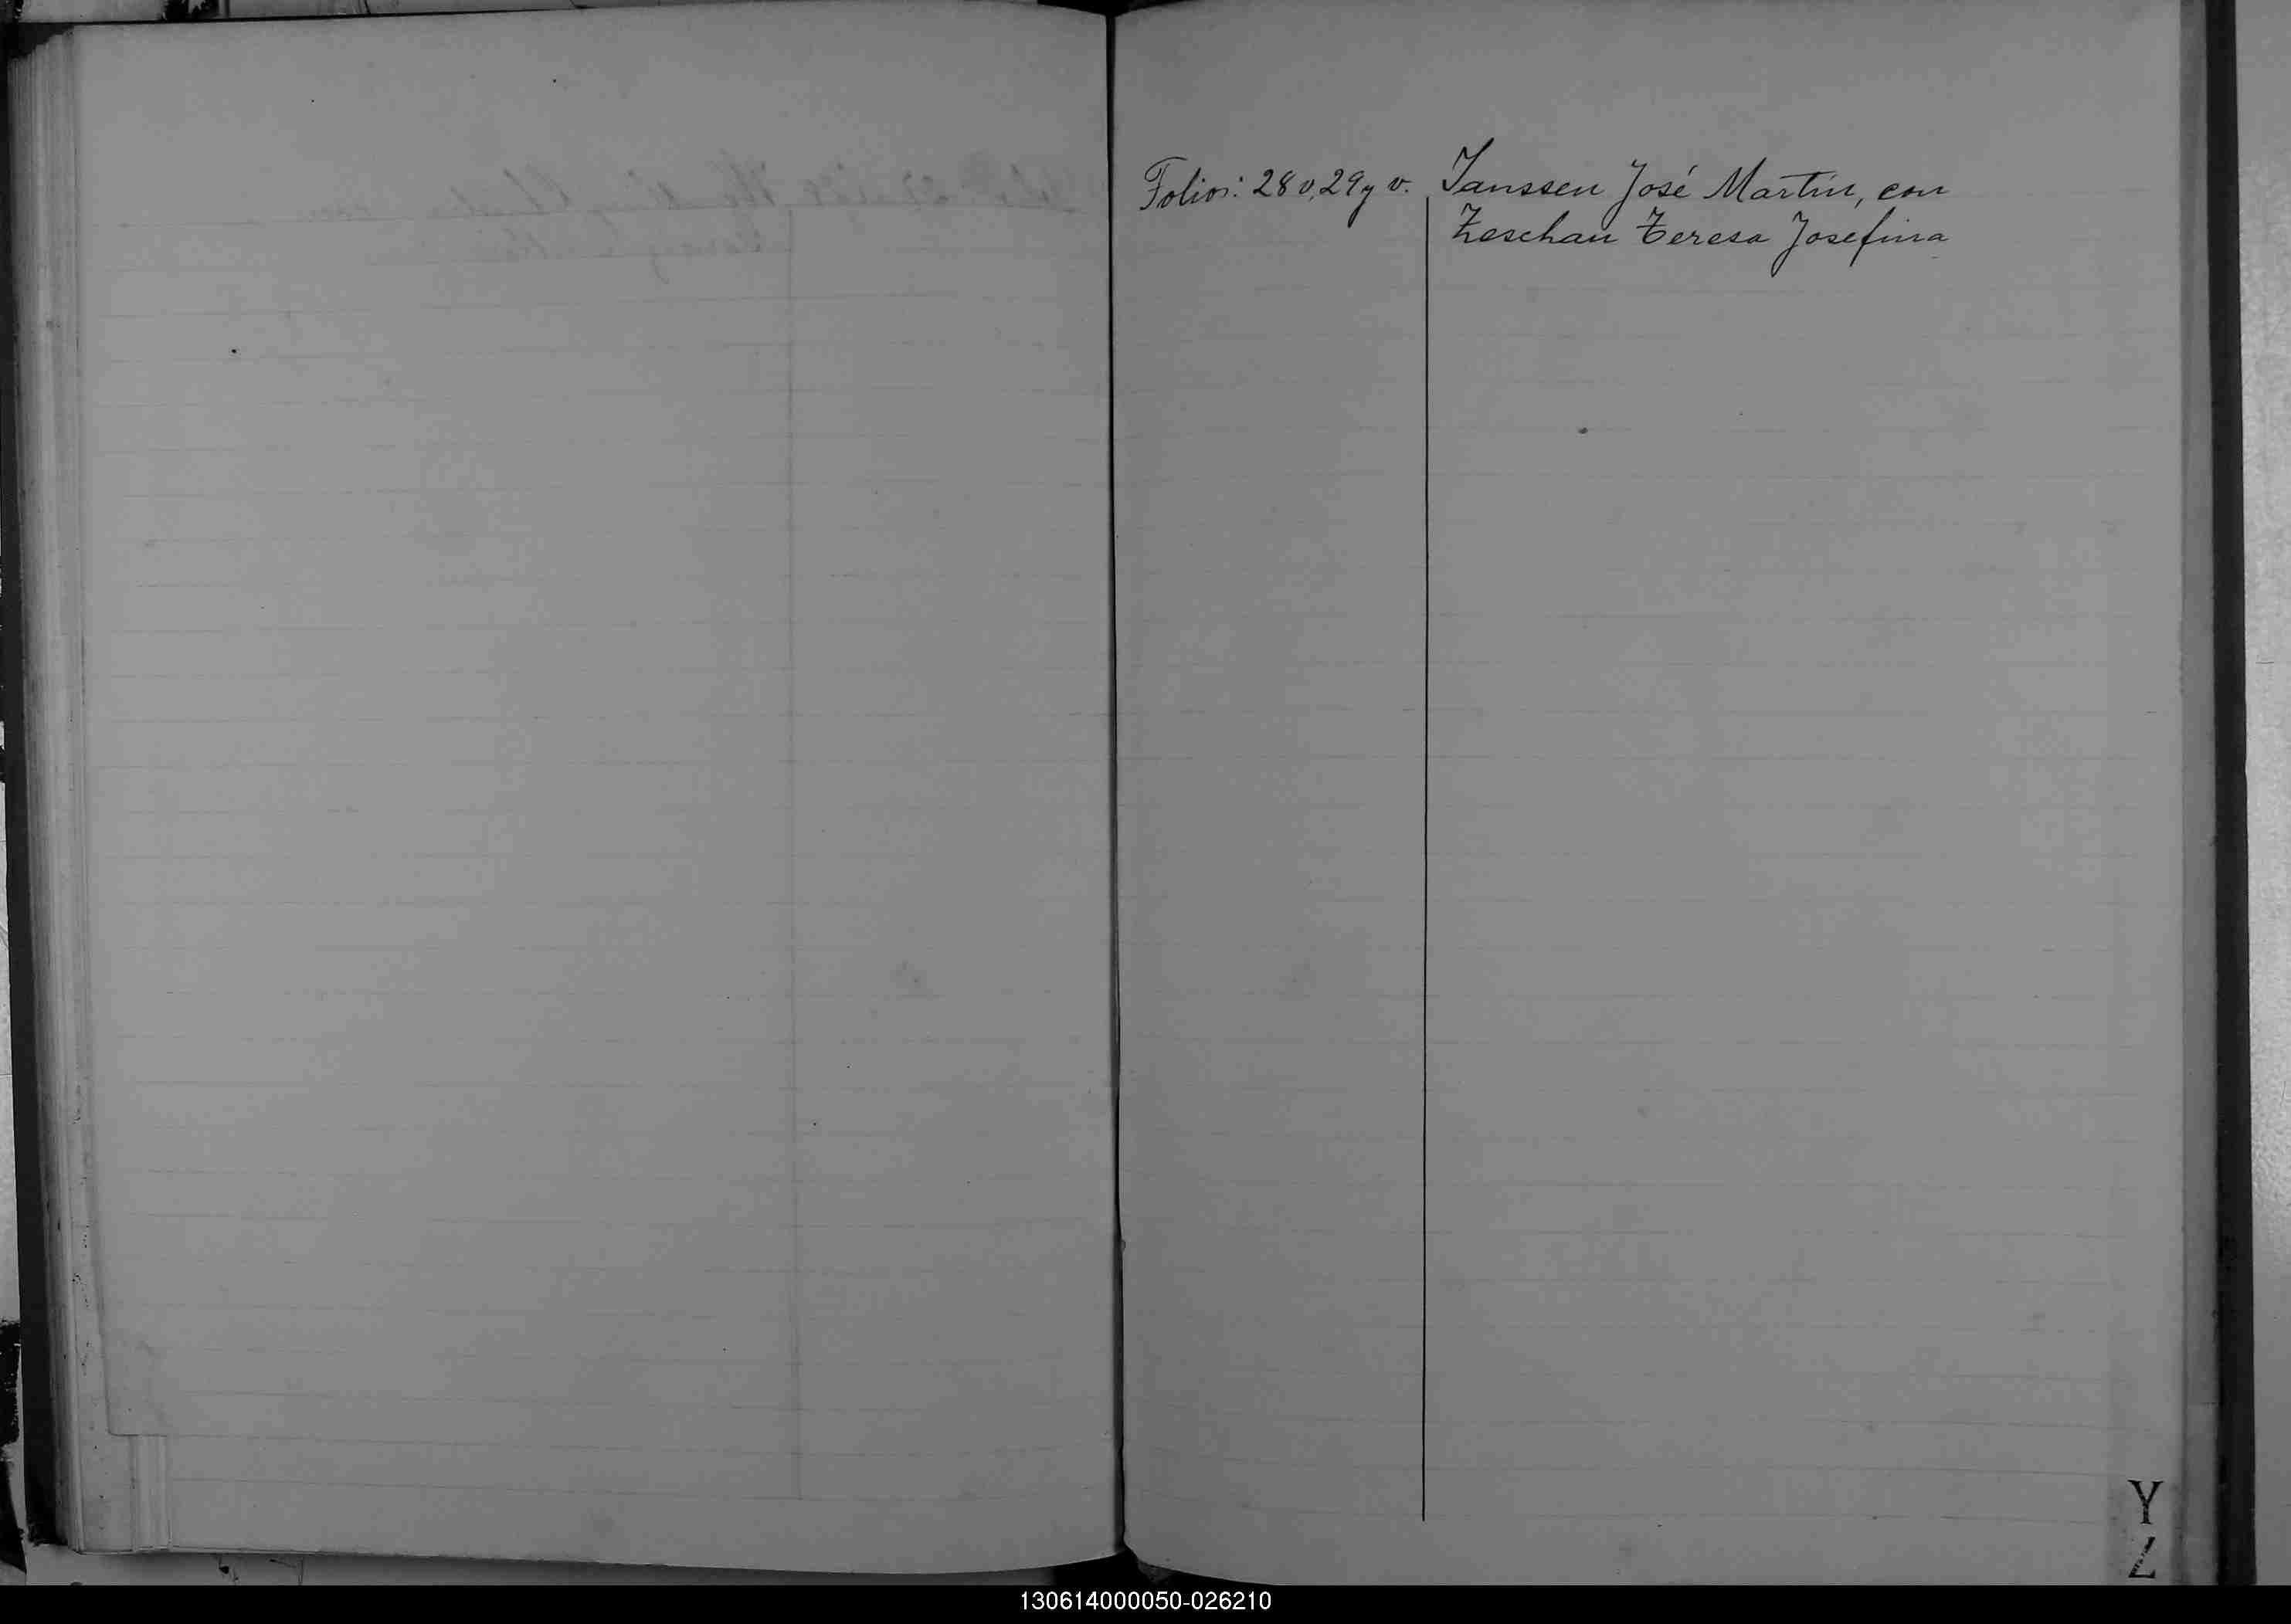 Folios: 28 v, 29 y v. Janssen José Martín, con
Zeschau Teresa Josefina
Y
Z
130614000050-026210